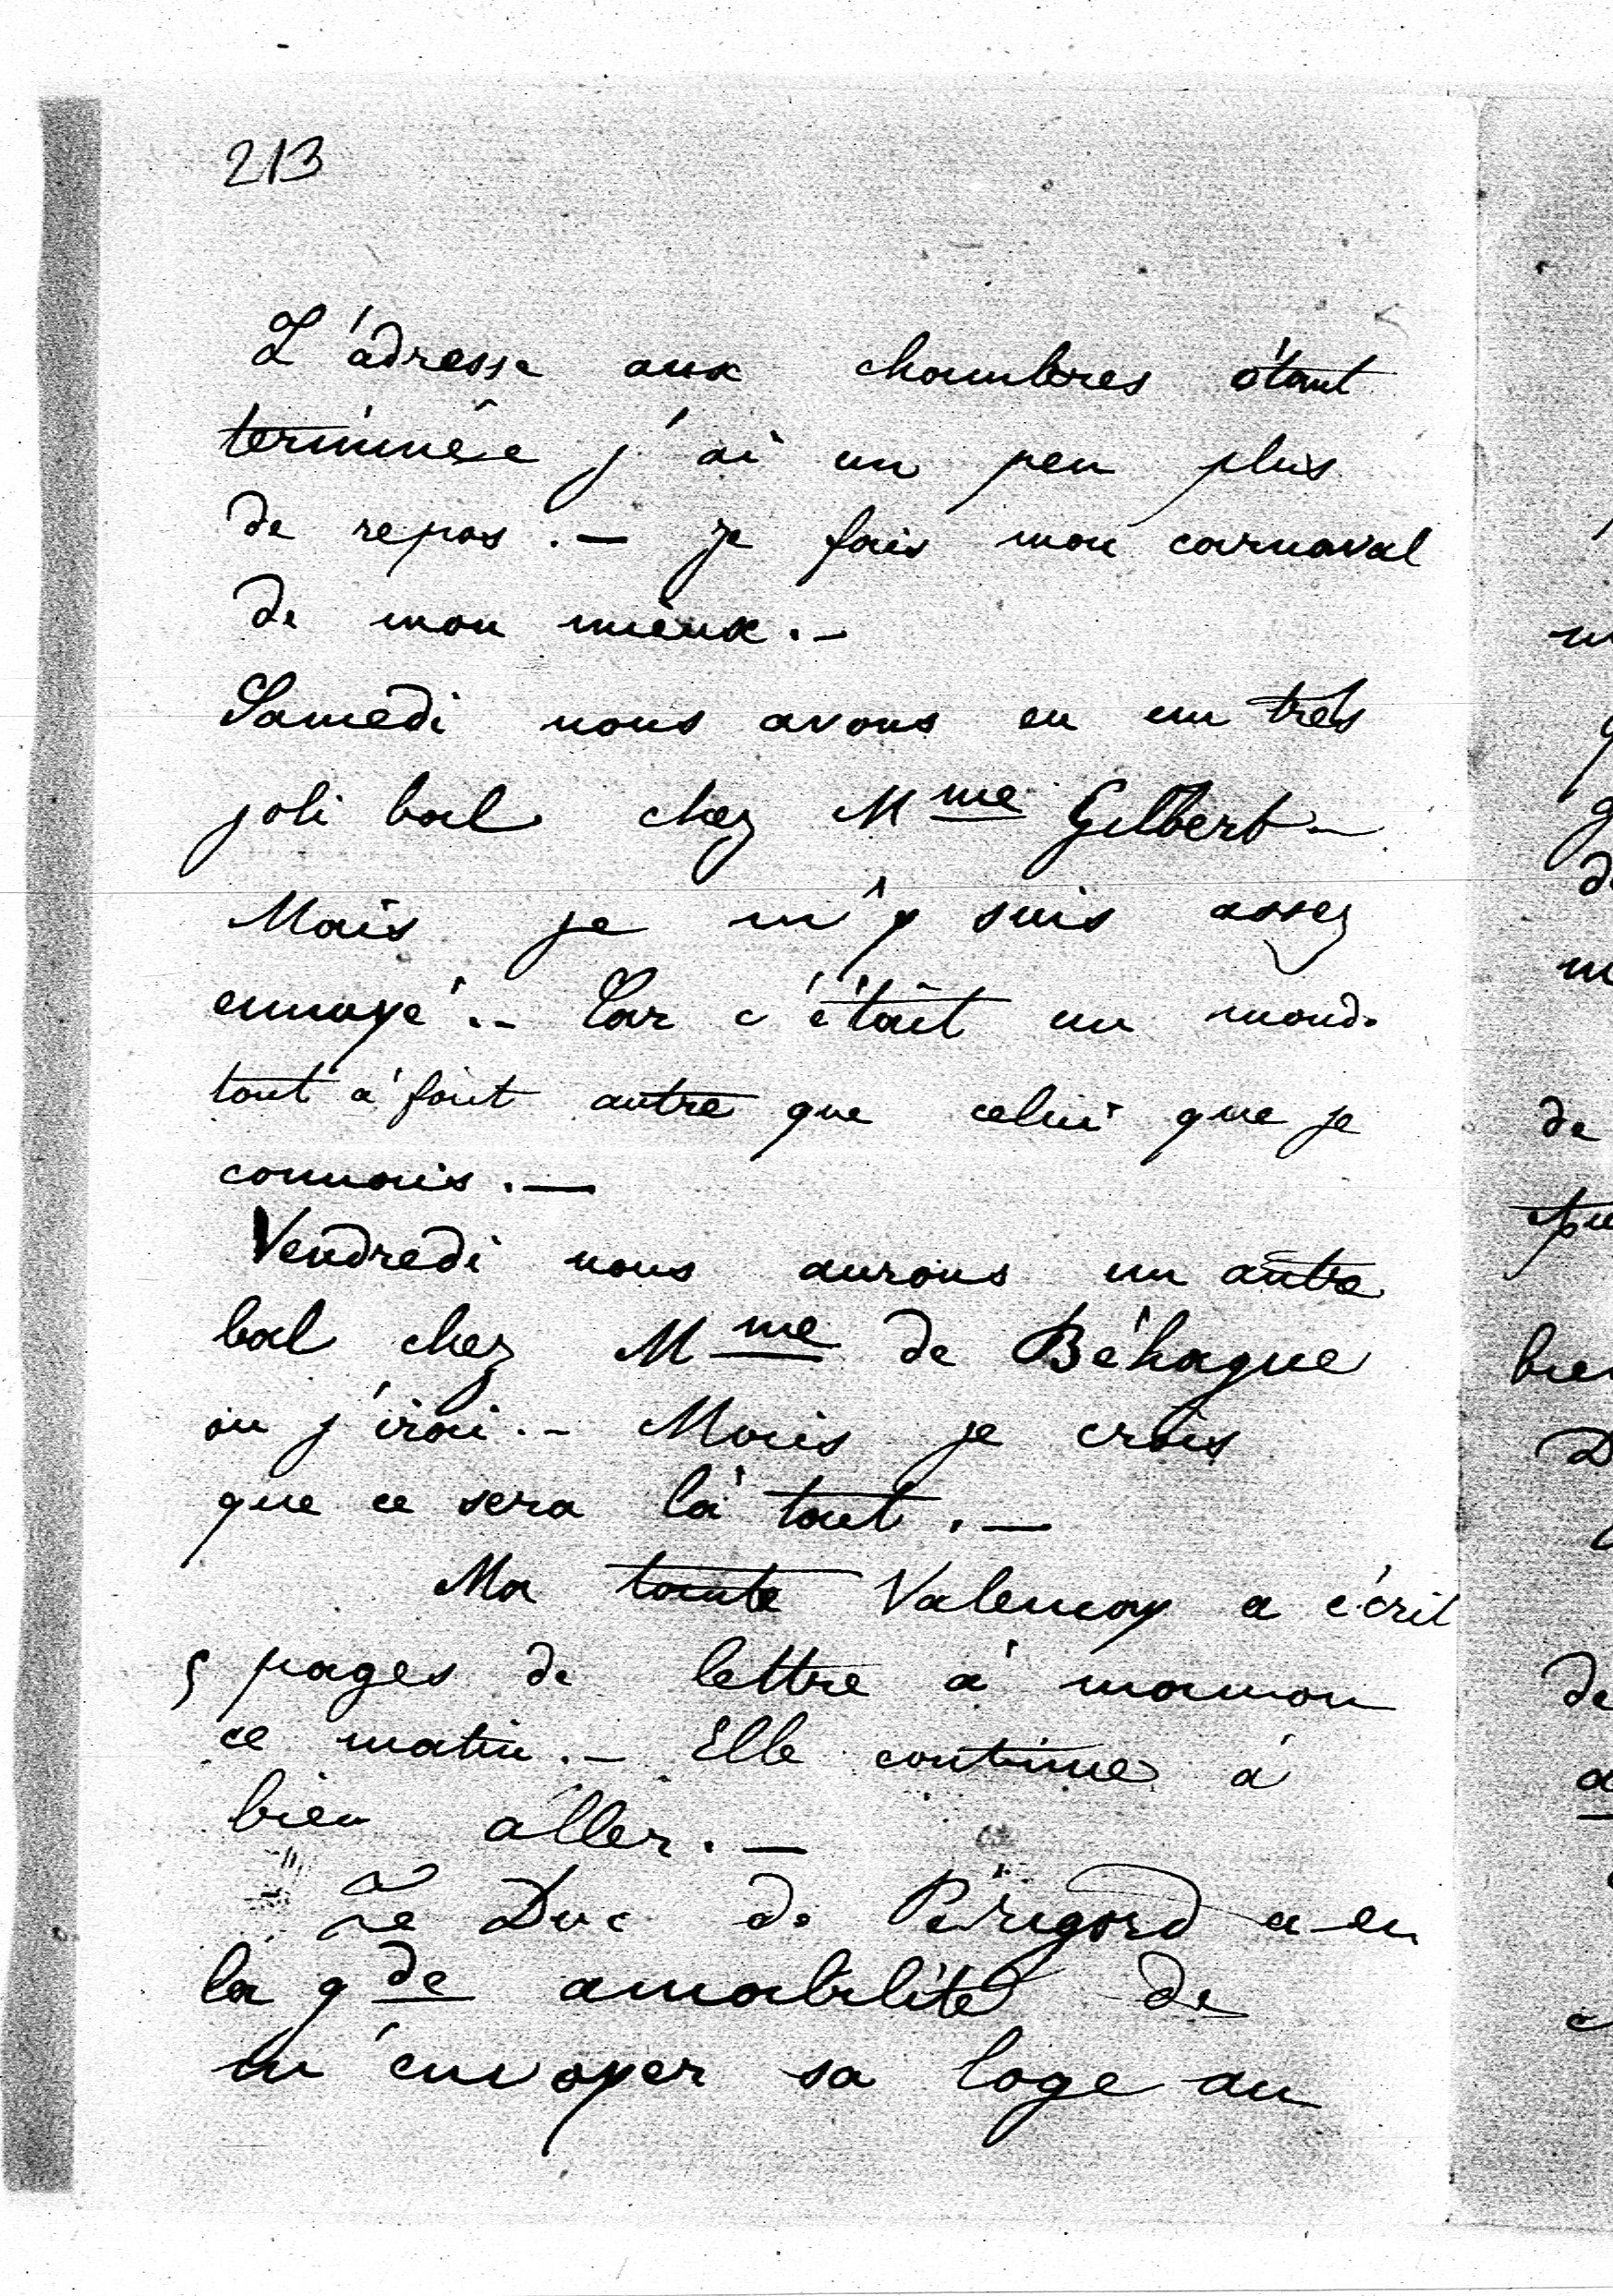 213
L'adresse aux chambres étant
terminée j'ai un peu plus
de repos. — je fais mon carnaval
de mon mieux. —
Samedi nous avons eu un très
joli bal chez Mme Gilbert —
Mais je m'y suis assez
ennuyé. — Car c'était un monde
tout à fait autre que celui que je
connais. —
Vendredi nous aurons un autre
bal chez Mme de Béhague
ou j'irai. — Mais je crois
que ce sera là tout. —
Ma tante Valencay a écrit
5 pages de lettre à maman
ce matin. — Elle continue à
bien aller. —
Le Duc de Périgord a eu
la gde amabilité de
m'envoyer sa loge au